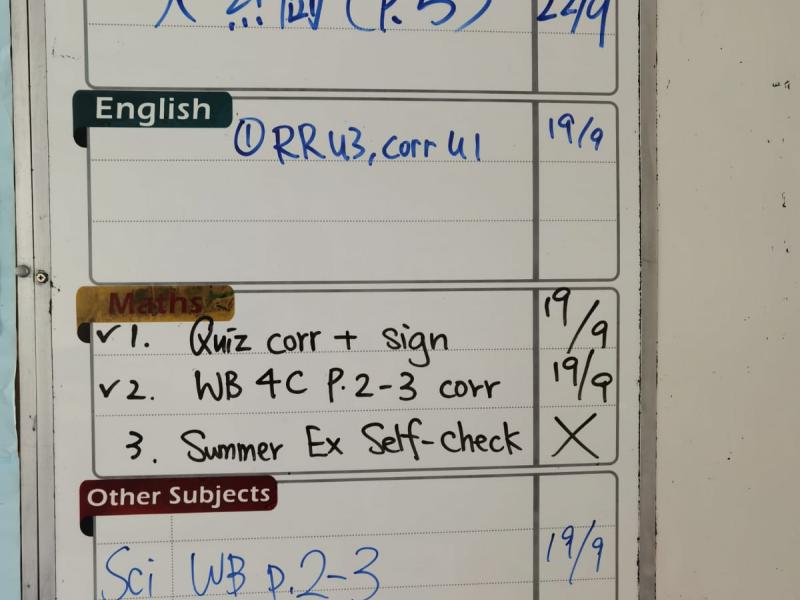 (P.5) 22/9
English
① RR U3, corr U1 19/9
Maths
✓1. Quiz corr + sign 19/9
✓2. WB 4C P.2-3 corr 19/9
3. Summer Ex Self-check X
Other Subjects
Sci WB p.2-3 19/9